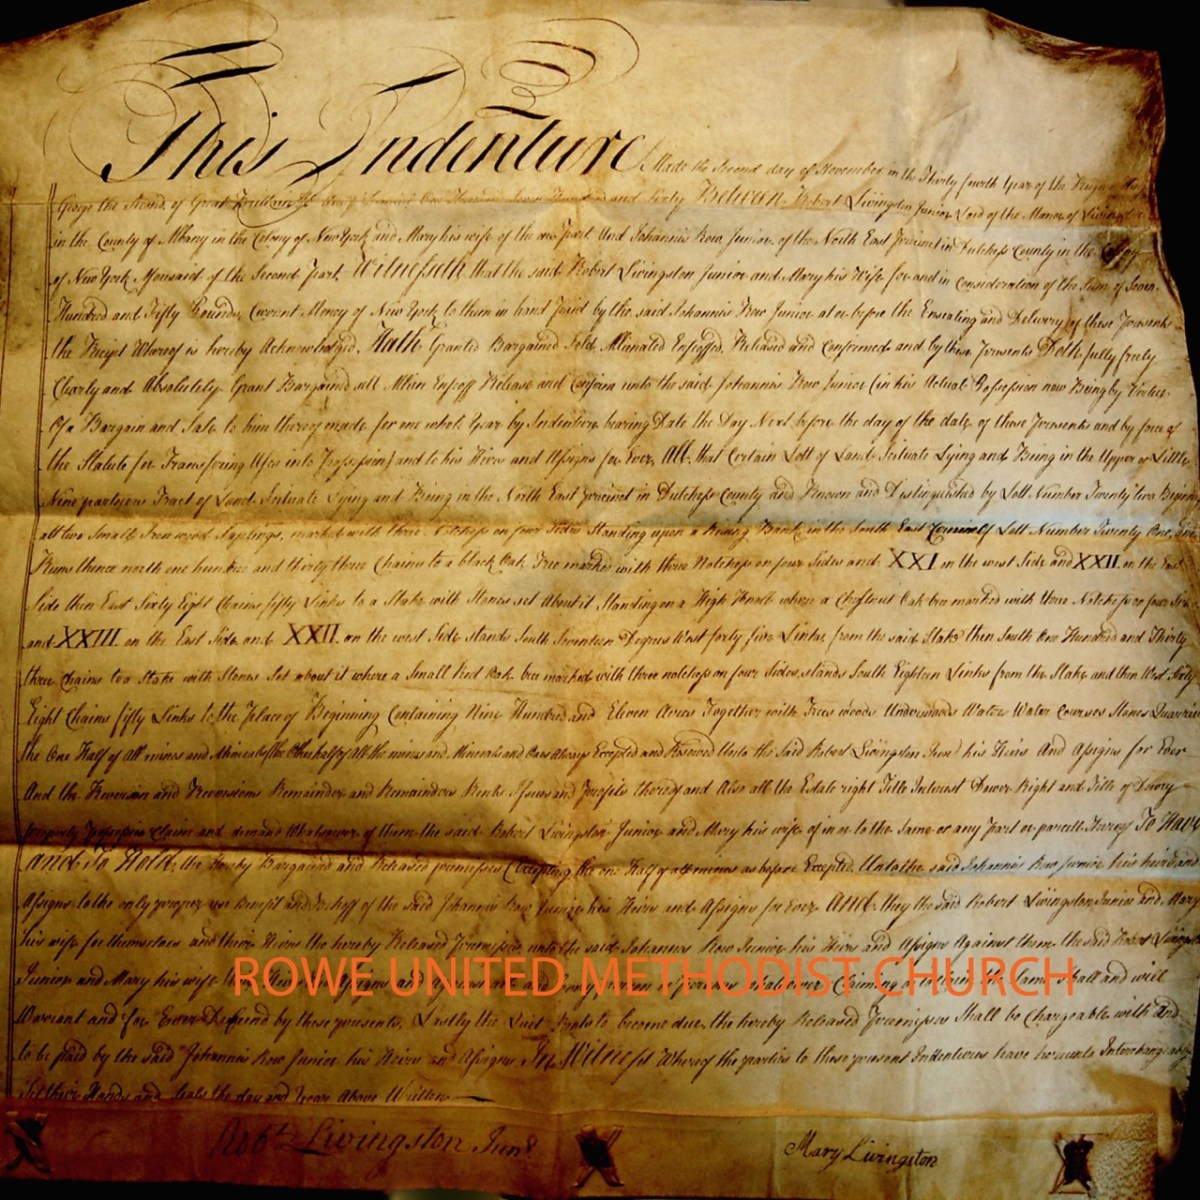 This Indenture Made the Second day of November in the Thirty fourth Year of the Reign
George the Second of Great and Sixty Between Robert Livingston Junior Lord of the Manor of
in the County of Albany in the Colony of New York and Mary his wife of the one Part And Johannis Row Junior of the North East Precinct in Dutchess County in the Colony
of New York Aforesaid of the Second Part Witnesseth that the said Robert Livingston Junior and Mary his Wife for and in Consideration of the Sum of Seven
Hundred and Fifty Pounds Current Money of New York to them in hand Paid by the said Johannis Row Junior at or before the Ensealing and Delivery of these Presents
the Receipt Whereof is hereby Acknowledged Hath Granted Bargained Sold Aliened Enfeoffed Released and Confirmed and by these Presents Doth fully freely
Clearly and Absolutely Grant Bargain Sell Alien Enfeoff Release and Confirm unto the said Johannis Row Junior (in his Actual Possession now Being by Virtue
Of a Bargain and Sale to him thereof made for one whole Year by Indenture bearing Date the Day Next before the day of the date of these Presents and by force of
the Statute for Transfering Uses into Possession) and to his Heirs and Assigns for Ever All that Certain Lott of Land Scituate Lying and Being in the Upper of Little
Nine partners Tract of Land Scituate Lying and Being in the North East Precinct in Dutchess County and Known and Distinguished by Lott Number Twenty two Beginning
att two Small Iron wood Saplings marked with three Notches on four Sides Standing upon a Rising Bank in the South East of Lott Number Twenty One and
Runs thence north one hundred and thirty three Chains to a black Oak Tree marked with three Notches on four Sides and XXI in the west Side and XXII on the East
Side then East Sixty Eight Chains fifty Links to a Stake with Stones set About it Standing on a High Knoll where a Chestnut Oak tree marked with three Notches on four Sides
and XXIII on the East Side and XXII on the west Side stands South Seventeen Degrees West forty five Links from the said Stake then South One Hundred and Thirty
three Chains to a Stake with Stones set about it where a Small Red Oak tree marked with three notches on four Sides stands South Eighteen Links from the Stake and then West Sixty
Eight Chains fifty Links to the Place of Beginning Containing Nine Hundred and Eleven Acres Together with Trees woods Underwoods Water Water Courses Stones Quarries
the One Half of All mines and Minerals the Other half of All the mines and Minerals and Oars Always Excepted and Reserved Unto the Said Robert Livingston Junr his Heirs And Assigns for Ever
And the Reversion and Reversions Remainder and Remainders Rents Issues and Profits thereof and Also all the Estate right Title Interest Dower Right and Title of Dowry
Property Possession Claim and demand Whatsoever of them the said Robert Livingston Junior and Mary his wife of in or to the Same or any Part or parcell thereof To Have
and to Hold the hereby Bargained and Released premisses (Excepting the one Half of all mines as before Excepted Unto the said Johannis Row Junior his heirs and
Assigns to the only proper use Benefit and Behoff of the Said Johannis Row Junior his Heirs and Assigns for Ever And they the said Robert Livingston Junior and Mary
his wife for themselves and their Heirs the hereby Released Premisses unto the said Johannis Row Junior his Heirs and Assigns Against them the said Robert Livingston
Junior and Mary his wife their Heirs Assigns and Claiming the Same Shall and will
Warrant and for Ever Defend by these presents Lastly the Quit Rents to become due the hereby Released Premisses Shall be Chargeable with and
to be paid by the said Johannis Row Junior his Heirs and Assigns In Witness Whereof the parties to these present Indentures have hereunto Interchangeably
Set their Hands and Seals the day and Year Above Written
Robt Livingston Junr Mary Livingston
ROWE UNITED METHODIST CHURCH